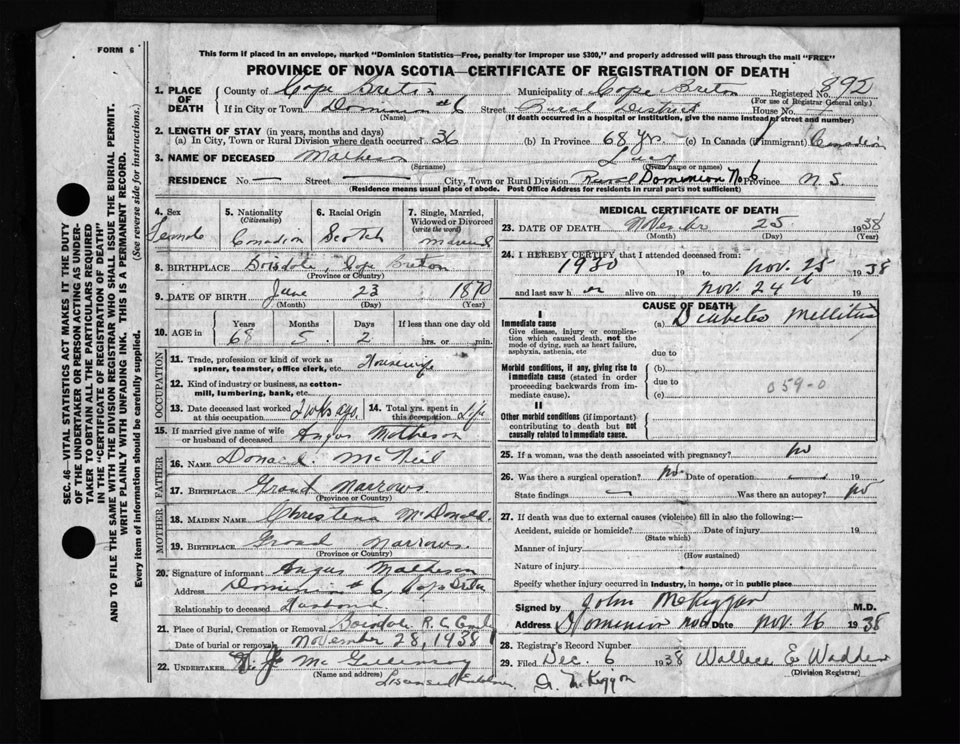 FORM 6
This form if placed in an envelope, marked "Dominion Statistics—Free, penalty for improper use $300," and properly addressed will pass through the mail "FREE"
PROVINCE OF NOVA SCOTIA—CERTIFICATE OF REGISTRATION OF DEATH
892
1. PLACE OF DEATH
County of Cape Breton Municipality of Cape Breton Registered No.
(For use of Registrar General only)
If in City or Town Dominion #6 Street Rural District House No.
(Name) (If death occurred in a hospital or institution, give the name instead of street and number)
2. LENGTH OF STAY (in years, months and days)
(a) In City, Town or Rural Division where death occurred 36 (b) In Province 68 yrs. (c) In Canada (if immigrant) Canadian
3. NAME OF DECEASED Matheson
(Surname) (Given name or names)
RESIDENCE No. — Street — City, Town or Rural Division Rural Dominion No 6 Province N.S.
(Residence means usual place of abode. Post Office Address for residents in rural parts not sufficient)
4. Sex Female
5. Nationality (Citizenship) Canadian
6. Racial Origin Scotch
7. Single, Married, Widowed or Divorced (write the word) Married
8. BIRTHPLACE Boisdale, Cape Breton
(Province or Country)
9. DATE OF BIRTH June 23 1870
(Month) (Day) (Year)
10. AGE in Years Months Days If less than one day old
68 5 2 hrs. or min.
OCCUPATION
11. Trade, profession or kind of work as spinner, teamster, office clerk, etc. Housewife
12. Kind of industry or business, as cotton-mill, lumbering, bank, etc.
13. Date deceased last worked at this occupation 2 wks ago.
14. Total yrs. spent in this occupation Life
15. If married give name of wife or husband of deceased Angus Matheson
FATHER
16. NAME Donald McNeil
17. BIRTHPLACE Grand Narrows.
(Province or Country)
MOTHER
18. MAIDEN NAME Christena McDonald.
19. BIRTHPLACE Grand Narrows.
(Province or Country)
20. Signature of informant Angus Matheson
Address Dominion #6, Cape Breton
Relationship to deceased Husband
21. Place of Burial, Cremation or Removal Boisdale R.C.
Date of burial or removal November 28, 1938
22. UNDERTAKER
(Name and address)
MEDICAL CERTIFICATE OF DEATH
23. DATE OF DEATH November 25 1938
(Month) (Day) (Year)
24. I HEREBY CERTIFY that I attended deceased from:
1930 19 to Nov. 25 1938
and last saw her alive on Nov. 24th 19
CAUSE OF DEATH
I
Immediate cause (a) Diabetes Mellitus
Give disease, injury or complication which caused death, not the mode of dying, such as heart failure, asphyxia, asthenia, etc
due to
Morbid conditions, if any, giving rise to immediate cause (stated in order proceeding backwards from immediate cause).
(b)
due to
059-0
(c)
II
Other morbid conditions (if important) contributing to death but not causally related to immediate cause.
25. If a woman, was the death associated with pregnancy? no
26. Was there a surgical operation? no Date of operation — 19
State findings — Was there an autopsy? no
27. If death was due to external causes (violence) fill in also the following:—
Accident, suicide or homicide? Date of injury 19
(State which)
Manner of injury
(How sustained)
Nature of injury
Specify whether injury occurred in industry, in home, or in public place
Signed by John McKiggan M.D.
Address Dominion No 6 Date Nov. 26 1938
28. Registrar's Record Number
29. Filed Dec. 6 1938 Wallace E. Wadden
(Division Registrar)
SEC. 46 VITAL STATISTICS ACT MAKES IT THE DUTY OF THE UNDERTAKER OR PERSON ACTING AS UNDERTAKER TO OBTAIN ALL THE PARTICULARS REQUIRED IN THE "CERTIFICATE OF REGISTRATION OF DEATH" AND TO FILE THE SAME WITH THE DIVISION REGISTRAR WHO SHALL ISSUE THE BURIAL PERMIT. WRITE PLAINLY WITH UNFADING INK. THIS IS A PERMANENT RECORD.
Every item of information should be carefully supplied. (See reverse side for instructions.)